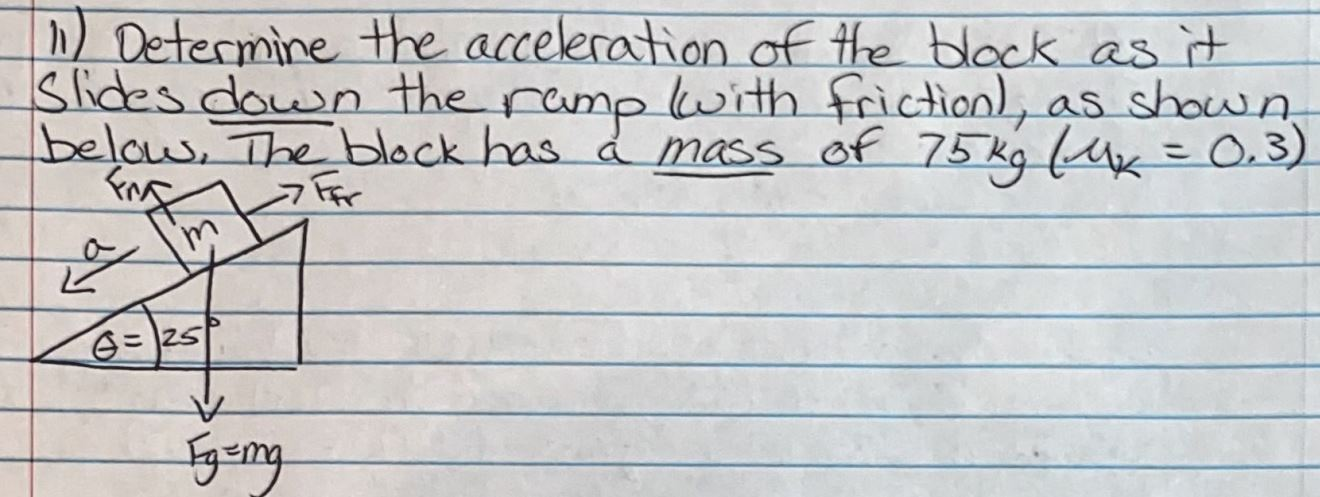 11) Determine the acceleration of the block as it
Slides down the ramp (with friction), as shown
below. The block has a mass of 75kg (μk = 0.3)
FN
Ffr
m
a
θ= 25°
Fg=mg